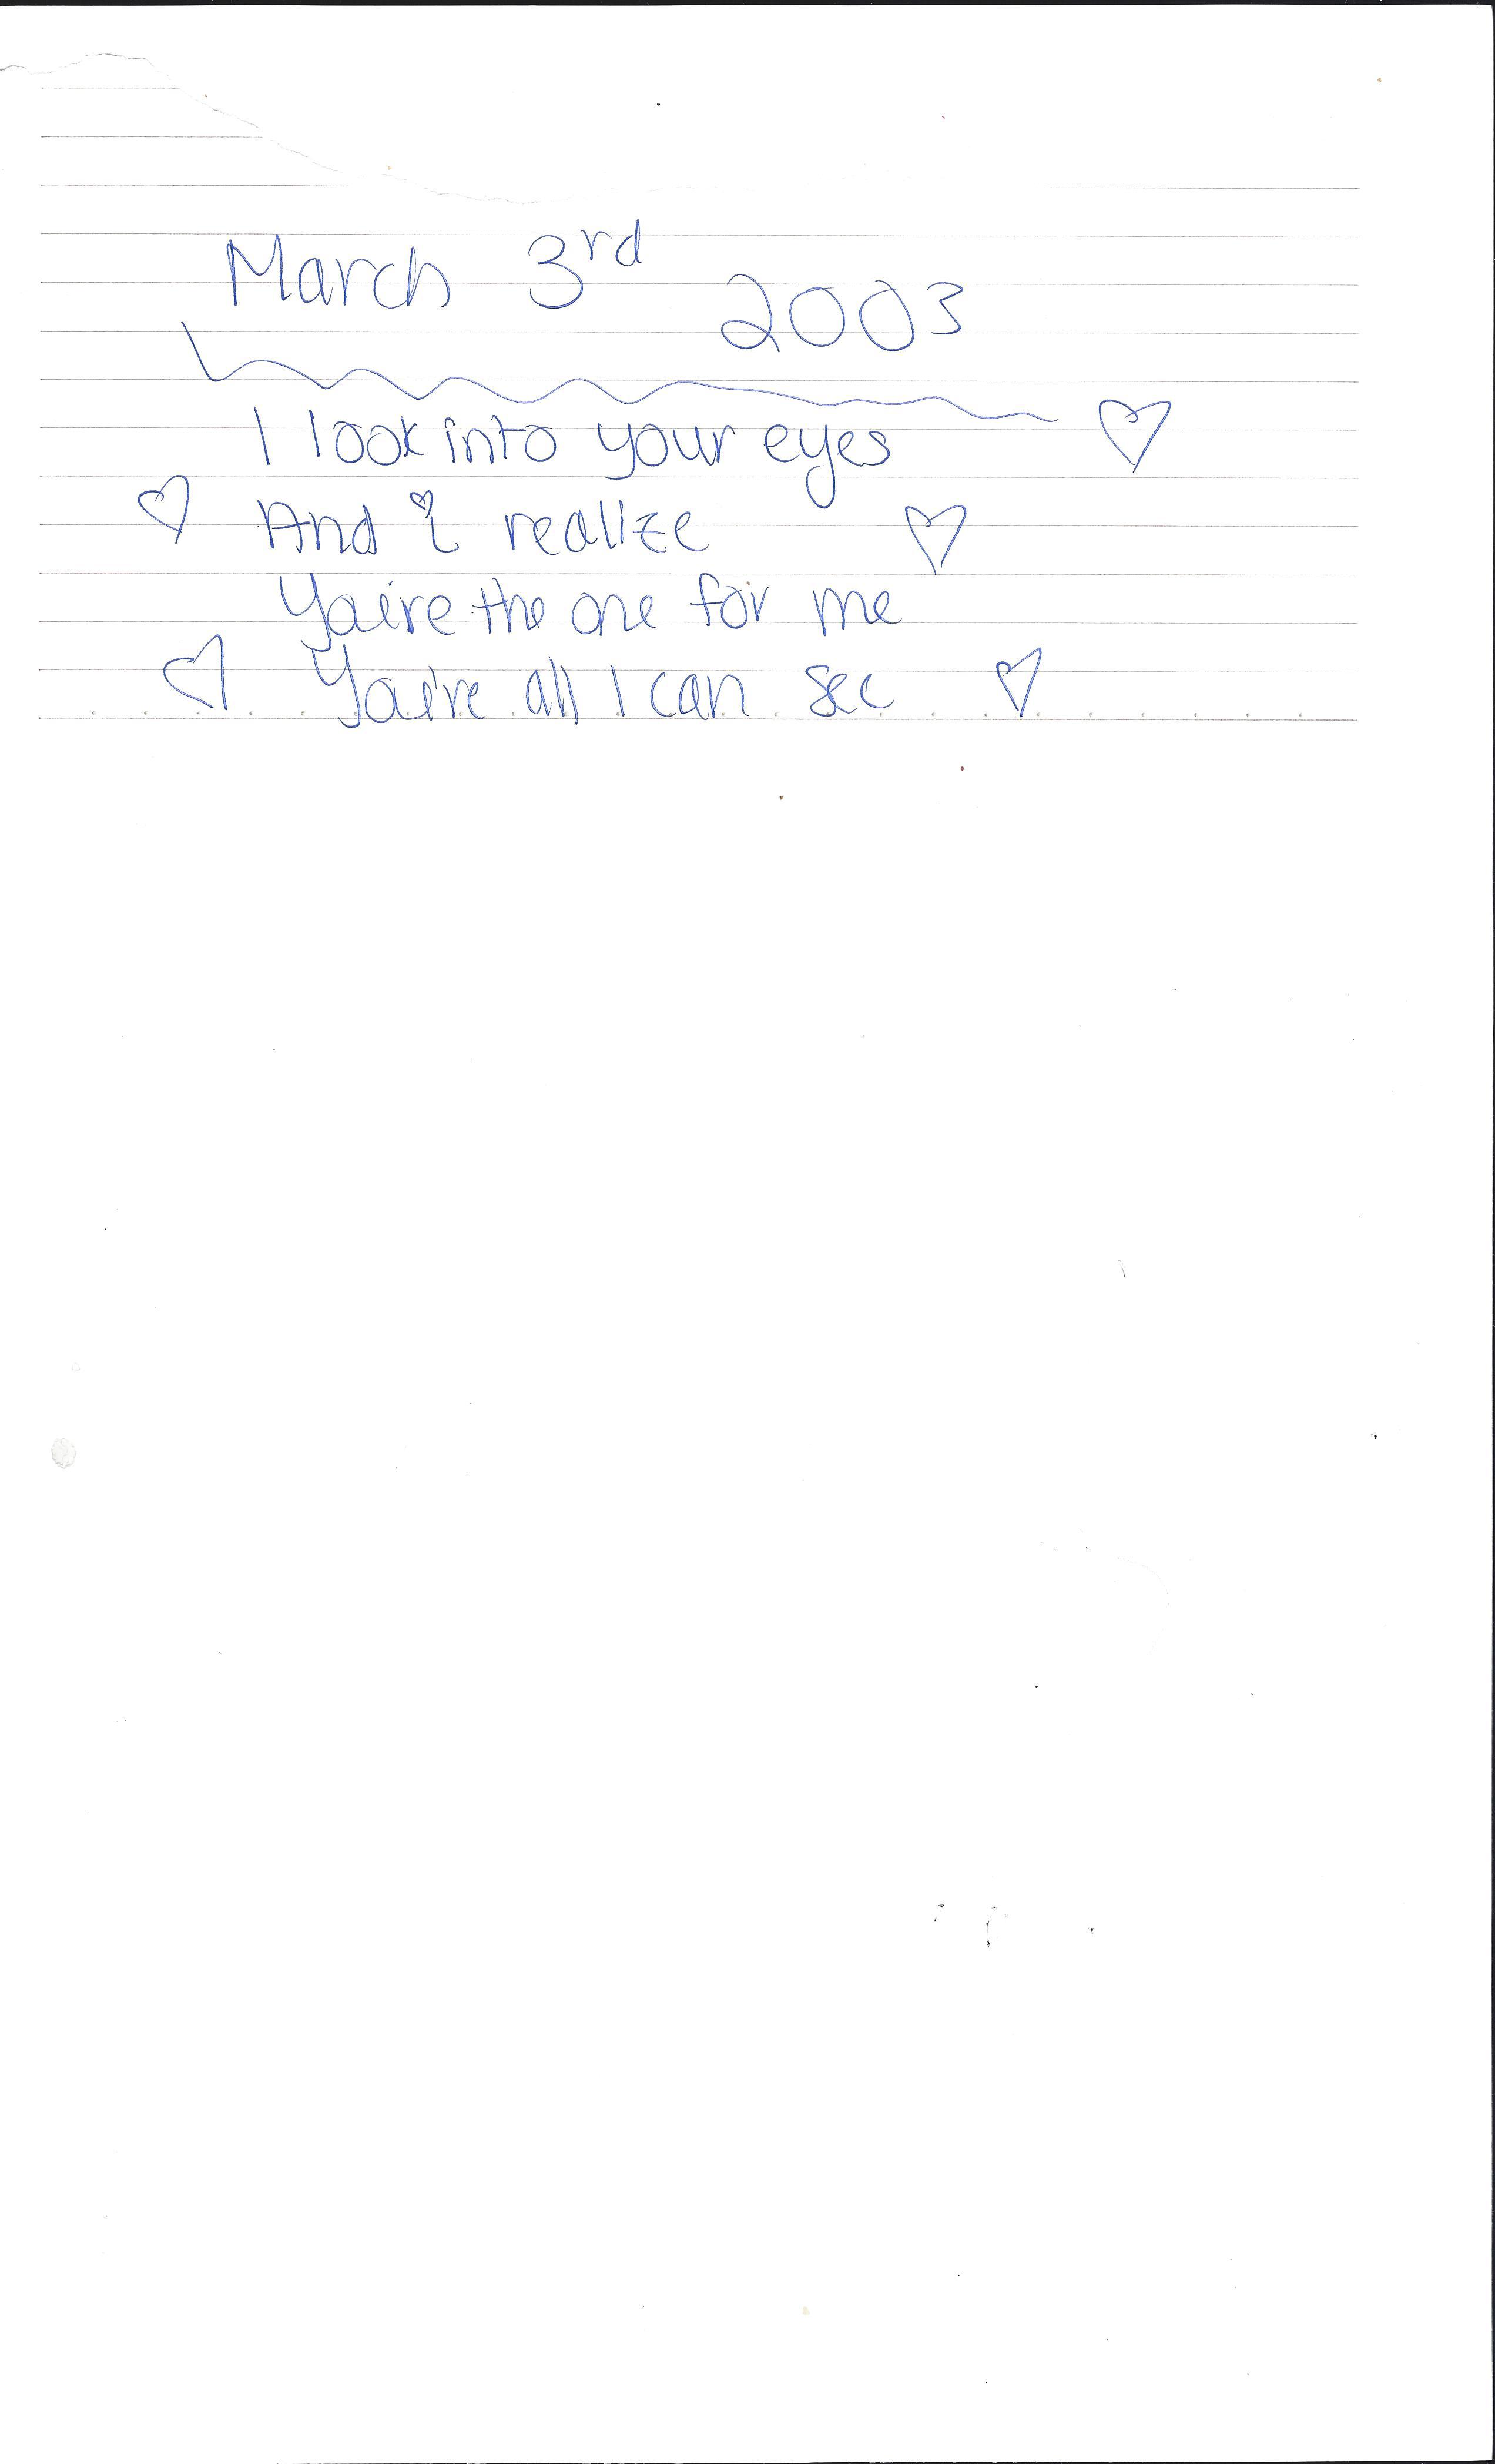 March 3rd 2003
I look into your eyes
And i realize
You're the one for me
You're all I can see